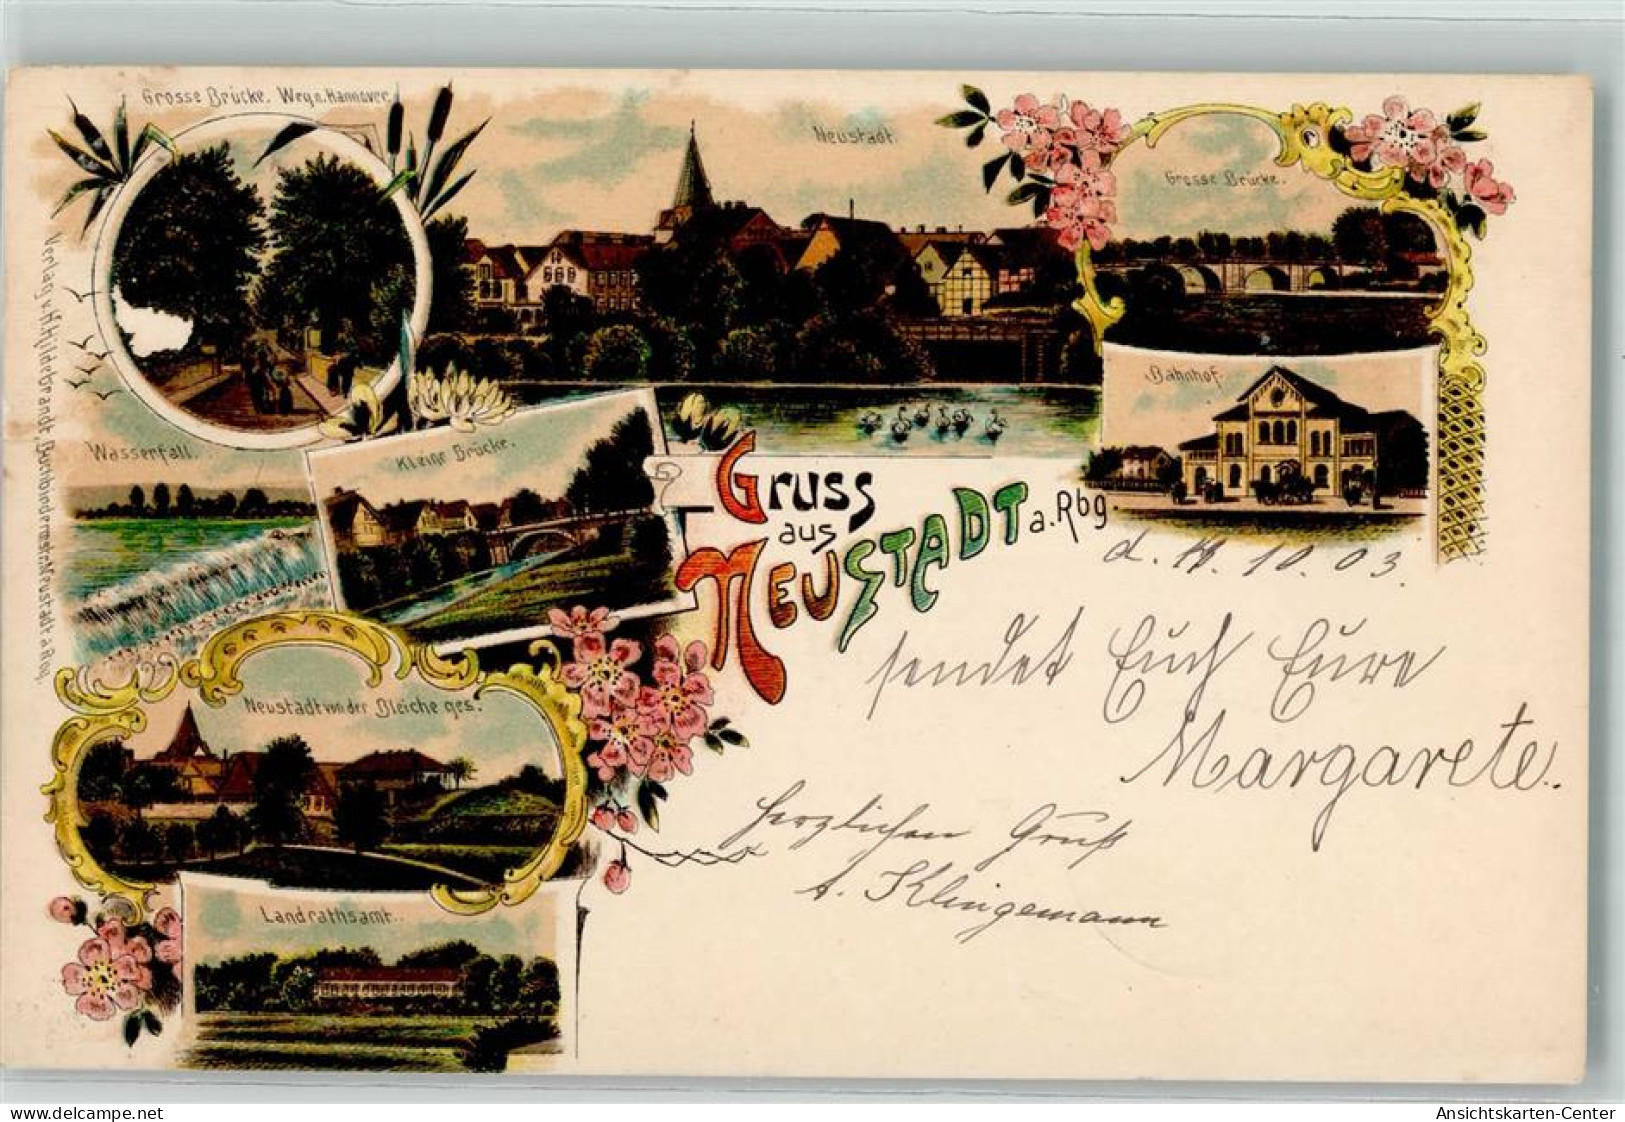 Grosse Brücke. Weg n. Hannover.
Neustadt.
Grosse Brücke.
Bahnhof.
Wasserfall.
Kleine Brücke.
Gruss
aus
Neustadt a. Rbg.
Neustadt von der Bleiche ges.
Landrathsamt.
Verlag v. H. Hildebrandt, Neustadt a. Rbg.
d. 10. 03.
sendet Euch Eure
Margarete.
Herzlichen Gruß
A. Klingemann
delcampe.net
Ansichtskarten-Center